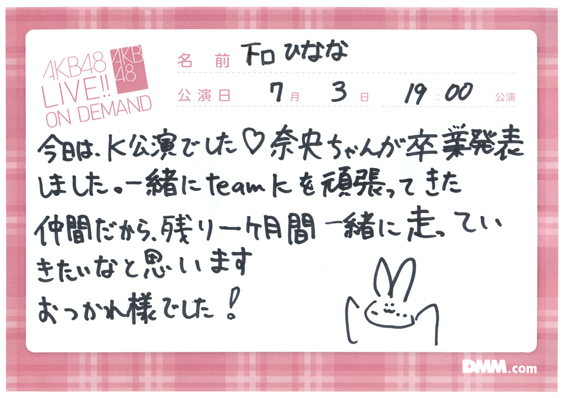 AKB48
LIVE!!
ON DEMAND
AKB
48
名前 下口ひなな
公演日 7月 3日 19:00 公演
今日は、K公演でした♡奈央ちゃんが卒業発表
しました。一緒にteamKを頑張ってきた
仲間だから、残り一ヶ月間一緒に走ってい
きたいなと思います
おつかれ様でした!
DMM.com